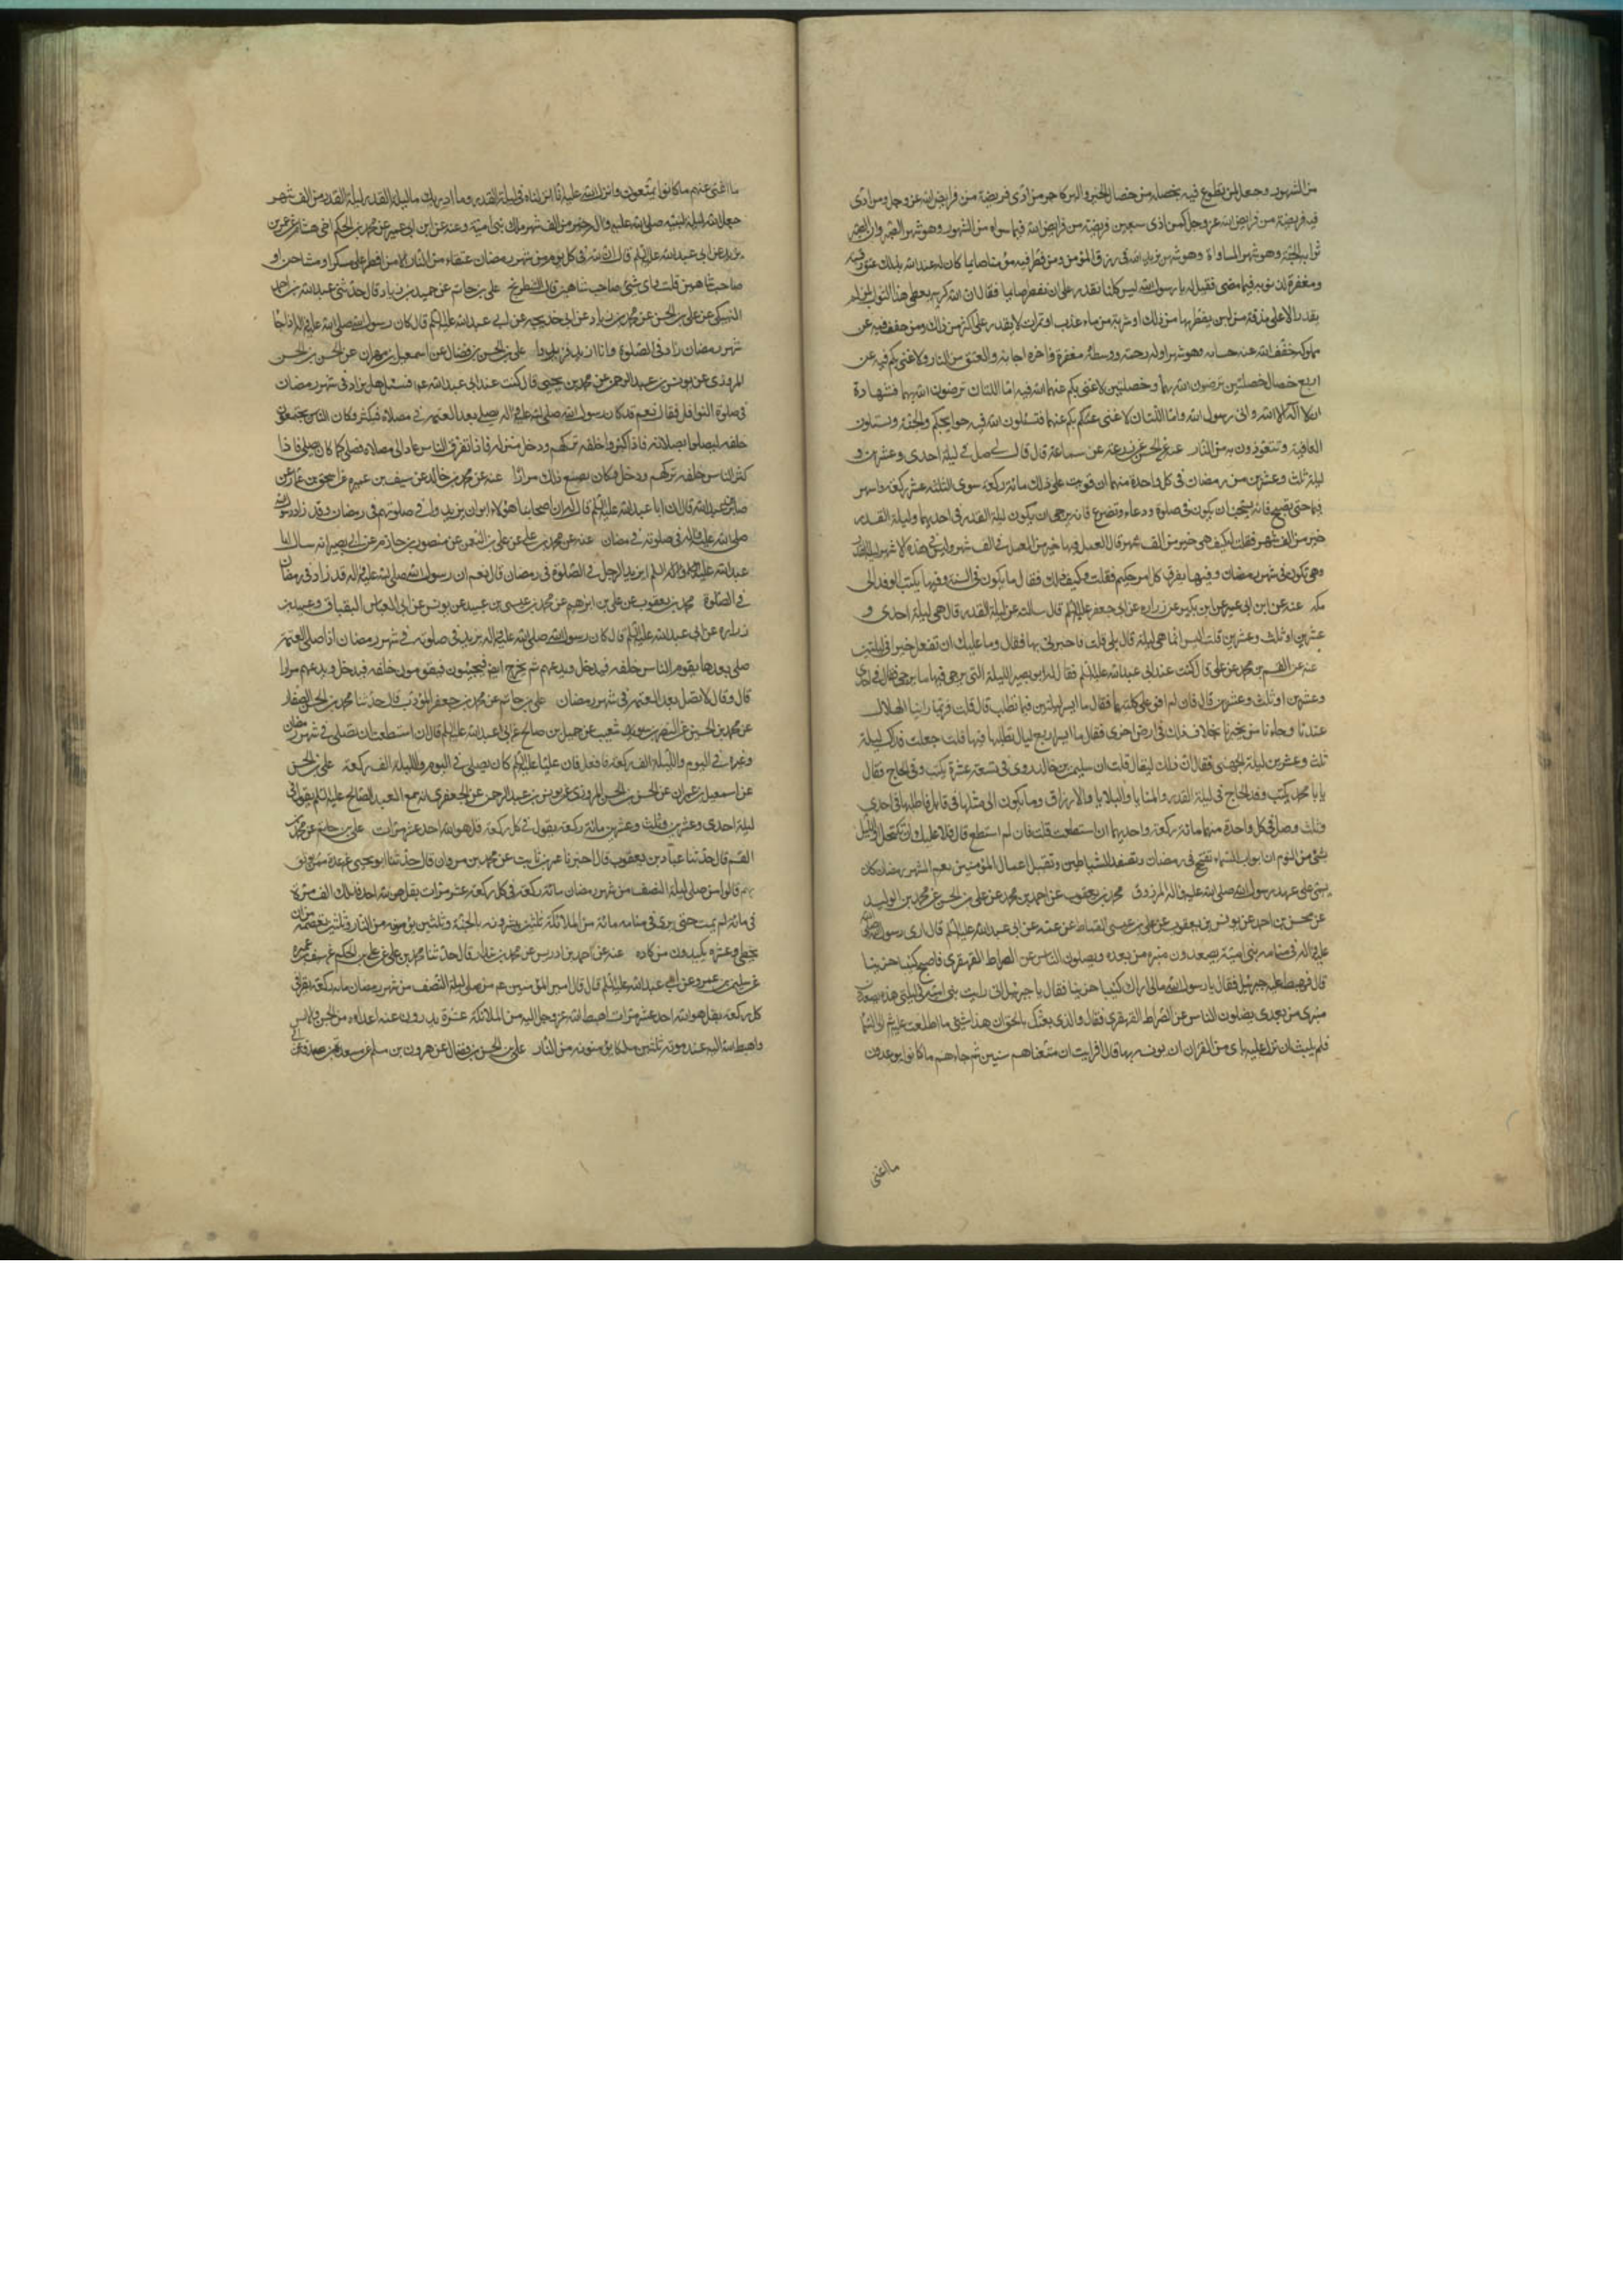 من الشهور وجعل لمن تطوع فيه بخصلة من خصال الخير والبر كاجر من ادى فريضة من فرايض الله عز وجل ومن ادى
فيه فريضة من فرايض الله عز وجل كمن ادى سبعين فريضة من فرايض الله فيما سواه من الشهور وهو شهر الصبر وان الصبر
ثوابه الجنة وهو شهر المساواة وهو شهر يزيد الله فى رزق المؤمن ومن فطر فيه مؤمنا صائما كان له عند الله بذلك عتق رقبة
ومغفرة لذنوبه فيما مضى فقيل له يا رسول الله ليس كلنا نقدر على ان نفطر صايما فقال ان الله كريم يعطى هذا الثواب لمن لم
يقدر الا على مذقة من لبن يفطر بها من ذلك او شربة من ماء عذب او تمرات لا يقدر على اكثر من ذلك ومن خفف فيه عن
مملوكه خفف الله عنه حسابه وهو شهر اوله رحمة ووسطه مغفرة واخره اجابة والعتق من النار ولا غنى بكم فيه عن
اربع خصال خصلتين ترضون الله بهما وخصلتين لا غنى بكم عنهما اما اللتان ترضون الله بهما فشهادة
ان لا اله الا الله وانى رسول الله واما اللتان لا غنى بكم عنهما فتسئلون الله فيه حوايجكم والجنة وتسئلون
العافية وتتعوذون به من النار عنه عن الحسن عن زرعة عن سماعة قال قال لى صل فى ليلة احدى وعشرين و
ليلة ثلث وعشرين من رمضان فى كل واحدة منهما ان قويت على ذلك مائة ركعة سوى الثلثة عشر ركعة واسهر
فيهما حتى تصبح فانه يستحب ان يكون فى صلوة ودعاء وتضرع فانه يرجى ان يكون ليلة القدر فى احديهما وليلة القدر
خير من الف شهر فقلت له كيف هى خير من الف شهر قال العمل فيها خير من العمل فى الف شهر وليس فى هذه الاشهر ليلة القدر
وهى تكون فى شهر رمضان وفيها يفرق كل امر حكيم فقلت وكيف ذلك فقال ما يكون فى السنة وفيها يكتب الوفد الى
مكه عنه عن ابن ابى عمير عن ابن بكير عن زراره عن ابى جعفر عليه السلم قال سالته عن ليلة القدر قال هى ليلة احدى و
عشرين او ثلث وعشرين قلت اليس انما هى ليلة قال بلى قلت فاخبرنى بها فقال وما عليك ان تفعل خيرا فى ليلتين
عنه عن القسم بن محمد عن على قال كنت عند ابى عبد الله عليه السلم فقال له ابو بصير الليلة التى يرجى فيها ما يرجى فقال فى احدى
وعشرين او ثلث وعشرين قال فان لم اقو على كلتيهما فقال ما ايسر ليلتين فيما تطلب قال قلت فربما راينا الهلال
عندنا وجاءنا من يخبرنا بخلاف ذلك فى ارض اخرى فقال ما ايسر اربع ليال تطلبها فيها قلت جعلت فداك ليلة
ثلث وعشرين ليلة الجهنى فقال ان ذلك ليقال قلت ان سليمن بن خالد روى فى تسعة عشرة يكتب وفد الحاج فقال
يا با محمد يكتب وفد الحاج فى ليلة القدر والمنايا والبلايا والارزاق وما يكون الى مثلها فى قابل فاطلبها فى احدى
وثلث وصل فى كل واحدة منهما مائة ركعة واحيهما ان استطعت قلت فان لم استطع قال فلا عليك ان تكتحل اول الليل
بشئ من النوم ان ابواب السماء تفتح فى رمضان وتصفد الشياطين وتقبل اعمال المؤمنين نعم الشهر رمضان كان
يسمى على عهد رسول الله صلى الله عليه واله المرزوق محمد بن يعقوب عن احمد بن محمد عن على بن الحسن عن محمد بن الوليد
عن محسن بن احمد عن يونس بن يعقوب عن على بن عيسى القماط عن عمه عن ابى عبد الله عليه السلم قال ارى رسول الله صلى الله
عليه واله فى منامه بنى امية يصعدون منبره من بعده ويضلون الناس عن الصراط القهقرى فاصبح كئيبا حزينا
قال فهبط عليه جبرئيل فقال يا رسول الله مالى اراك كئيبا حزينا فقال يا جبرئيل انى رايت بنى امية فى ليلتى هذه يصعدون
منبرى من بعدى يضلون الناس عن الصراط القهقرى فقال والذى بعثك بالحق ان هذا شئ ما اطلعت عليه ثم عرج الى السماء
فلم يلبث ان نزل عليه باى من القران ان يونسه بها قال افرايت ان متعناهم سنين ثم جاءهم ما كانوا يوعدون
ما اغنى
ما اغنى عنهم ما كانوا يمتعون وانزل الله عليه انا انزلناه فى ليلة القدر وما ادريك ما ليلة القدر ليلة القدر خير من الف شهر
جعل الله ليلة لنبيه صلى الله عليه واله خير من الف شهر ملك بنى امية وعنه عن ابن ابى عمير عن محمد بن الحكم اخى هشام عن عمر بن
يزيد عن ابى عبد الله عليه السلم قال ان لله فى كل يوم من شهر رمضان عتقاء من النار الا من افطر على مسكر او مشاحن او
صاحب شاهين قلت واى شئ صاحب شاهين قال الشطرنج على بن حاتم عن حميد بن زياد قال حدثنى عبد الله بن احمد
النهيكى عن على بن الحسن عن محمد بن زياد عن ابى خديجه عن ابى عبد الله عليه السلم قال كان رسول الله صلى الله عليه واله اذا جاء
شهر رمضان زاد فى الصلوة وانا ازيد فزيدوا على بن الحسن بن فضال عن اسمعيل بن مهران عن الحسن بن الحسن
المروزى عن يونس بن عبد الرحمن عن محمد بن يحيى قال كنت عند ابى عبد الله عم فسئل هل يزاد فى شهر رمضان
فى صلوة النوافل فقال نعم قد كان رسول الله صلى الله عليه واله يصلى بعد العتمه فى مصلاه فيكثر وكان الناس يجتمعون
خلفه ليصلوا بصلاته فاذا كثروا خلفه تركهم ودخل منزله فاذا تفرق الناس عاد الى مصلاه فصلى كما كان يصلى فاذا
كثر الناس خلفه تركهم ودخل وكان يصنع ذلك مرارا عنه عن محمد بن خالد عن سيف بن عميره عن اسحق بن عمار عن
صابر بن عبد الله قال ان ابا عبد الله عليه السلم قال له ان اصحابنا هؤلاء ابوا ان يزيدوا فى صلوتهم فى رمضان وقد زاد رسول الله
صلى الله عليه واله فى صلوته فى رمضان عنه عن محمد بن على عن على بن النعمن عن منصور بن حازم عن ابى بصير انه سال ابا
عبد الله عليه السلم ايزيد الرجل فى الصلوة فى رمضان قال نعم ان رسول الله صلى الله عليه واله قد زاد فى رمضان
فى الصلوة محمد بن يعقوب عن على بن ابرهيم عن محمد بن عيسى بن عبيد عن يونس عن ابى العباس البقباق وعبيد بن
زراره عن ابى عبد الله عليه السلم قال كان رسول الله صلى الله عليه واله يزيد فى صلوته فى شهر رمضان اذا صلى العتمه
صلى بعدها يقوم الناس خلفه فيدخل ويدعهم ثم يخرج ايضا فيجيئون فيقومون خلفه فيدخل ويدعهم مرارا
قال وقال لا تصل بعد العتمه فى شهر رمضان على بن حاتم عن محمد بن جعفر المؤدب قال حدثنا محمد بن الحسن الصفار
عن محمد بن الحسين عن النضر بن شعيب عن جميل بن صالح عن ابى عبد الله عليه السلم قال ان استطعت ان تصلى فى شهر رمضان
وغيره فى اليوم والليلة الف ركعة فافعل فان عليا عليه السلم كان يصلى فى اليوم والليلة الف ركعة على بن الحسن
عن اسمعيل بن مهران عن الحسن بن الحسن المروزى عن يونس بن عبد الرحمن عن الجعفرى انه سمع العبد الصالح عليه السلم يقول فى
ليلة احدى وعشرين وثلث وعشرين مائة ركعة يقول فى كل ركعة قل هو الله احد عشر مرات على بن حاتم عن محمد بن
القسم قال حدثنا عباد بن يعقوب قال اخبرنا عمرو بن ثابت عن محمد بن مروان قال حدثنا ابو يحيى عن عدة ممن يوثق
بهم قالوا من صلى ليلة النصف من شهر رمضان مائة ركعة فى كل ركعة عشر مرات بقل هو الله احد فذلك الف مرة
فى مائة لم يمت حتى يرى فى منامه مائة من الملائكة ثلثين يبشرونه بالجنة وثلثين يؤمنونه من النار وثلثين تعصمه من ان
يخطى وعشره يكيدون من كاده عنه عن احمد بن ادريس عن محمد بن قال حدثنا محمد بن على عن على بن الحكم عن سيف بن عميره
عن سليمن بن عمرو عن ابى عبد الله عليه السلم قال قال امير المؤمنين عم من صلى ليلة النصف من شهر رمضان مائة ركعة يقرا فى
كل ركعة بقل هو الله احد عشر مرات اهبط الله عز وجل اليه من الملائكة عشرة يدرون عنه اعداءه من الجن والانس
واهبط الله اليه عند موته ثلثين ملكا يؤمنونه من النار على بن الحسن بن فضال عن هرون بن مسلم عن مسعدة بن صدقة عن ابى